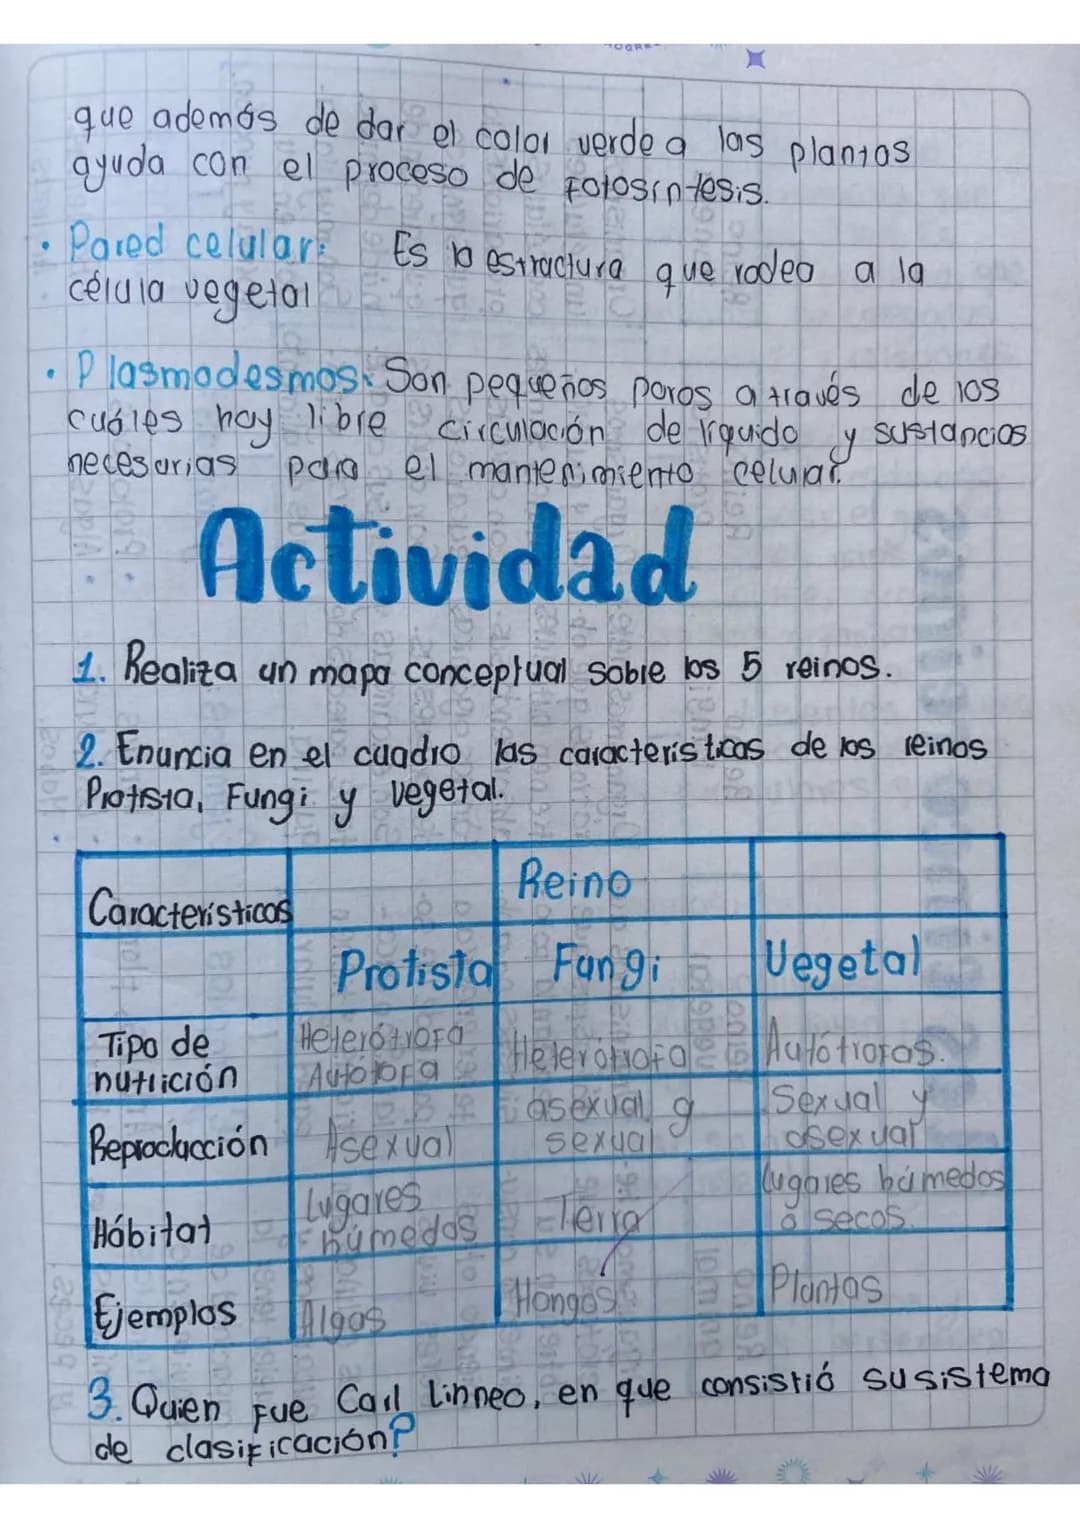 que además de dar el color verde a las plantas
ayuda con el proceso de Fotosíntesis.
• Pared celular: Es la estractura que rodea a la
célula vegetal
• Plasmodesmos: Son pequeños poros a través de los
cuáles hay libre circulación de líquido y sustancias
necesarias para el mantenimiento celular.
Actividad
1. Realiza un mapa conceptual sobre los 5 reinos.
2. Enuncia en el cuadro las características de los reinos
Protista, Fungi y vegetal.
Características Reino
Protista Fungi Vegetal
Tipo de nutrición Heterótrofa Autotofa Heterótrofa Autótrofas.
Reproducción Asexual asexual y sexual Sexual y asexual
Hábitat Lugares húmedos Terra Lugares húmedos o secos.
Ejemplos Algas Hongos Plantas
3. Quien fue Carl Linneo, en que consistió su sistema
de clasificación?